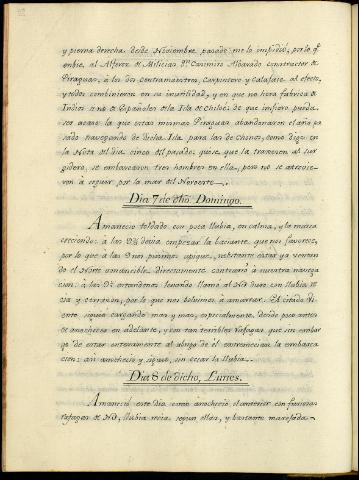 y pierna derecha desde Noviembre pasado me lo impidió, por lo q.e
embie al Alferez de Milicias D.n Casimiro Alvarado constructor de
Piraguas, á los dos contramaestres, Carpintero y Calafate al efecto,
y todos combinieron en su inutilidad, y en que no hera fabrica de
Indios sino de Españoles de la Isla de Chiloé; de que infiero, pueda
ser acaso la que estas mismas Piraguas abandonaron el año pa
sado navegando de dicha Isla para las de Chonos, como digo en
la Nota del dia cinco del pasado: quise que la trageran al Sur
gidero, se embarcaron tres hombres en ella, pero no se atrevie
ron á seguir por la mar del Noroeste.
Dia 7 de dho Domingo.
Amaneció toldado con poca llubia, en calma, y la marea
creciendo: á las devia empezar la baciante que nos favorece,
por lo que á las 9 nos pusimos apique, no obstante estar ya ventan
do el Norte vonancible directamente contrario á nuestra navega
cion: á las orientandose, llamó al NO duro con llubia re
cia y cerrazon, por lo que nos bolvimos á amarrar. El citado Vi
ento, siguió cargando mas y mas, especialmente, desde poco antes
de anochecer en adelante, y con tan terribles rafagas que sin embar
go de estar enteramente al abrigo de él estremecian la embarca
cion: asi anocheció y sigue, sin cesar la llubia.
Dia 8 de dicho, Lunes.
Amaneció este dia como anocheció el anterior con furiosas
rafagas de NO, llubia recia segun ellas, y bastante marejada